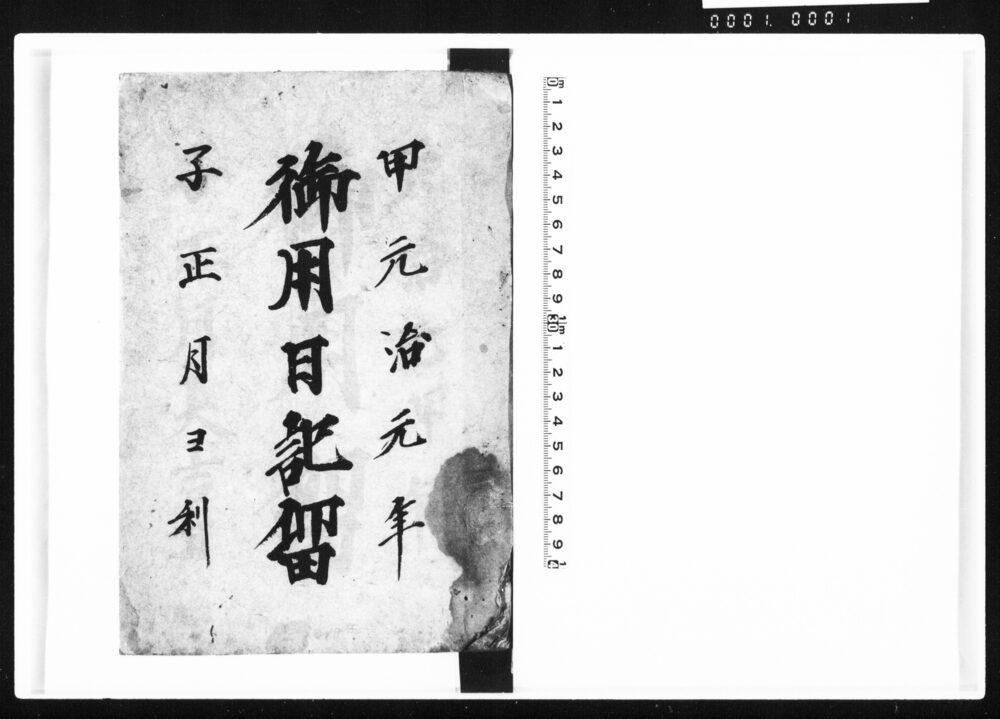 0001. 0001
甲元治元年
御用日記留
子正月ヨ利
0 1 2 3 4 5 6 7 8 9 10 1 2 3 4 5 6 7 8 9